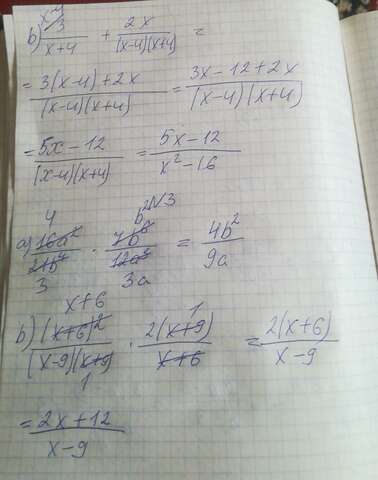 x-4
b) 3/(x+4) + 2x/((x-4)(x+4)) =
= (3(x-4)+2x)/((x-4)(x+4)) = (3x-12+2x)/((x-4)(x+4))
= (5x-12)/((x-4)(x+4)) = (5x-12)/(x²-16)
N3
a) 16a²/21b⁴ · 7b⁶/12a³ = 4b²/9a
4 b²
3 3a
x+6 1
b) (x+6)²/((x-9)(x+9)) · 2(x+9)/(x+6) = 2(x+6)/(x-9)
1
= (2x+12)/(x-9)